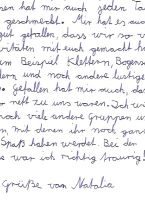 sen hat mir auch jeden Ta
geschmeckt. Mir hat es auc
gut gefallen, dass wir so v
ivitäten mit euch gemacht h
um Beispiel Klettern, Bogens
dern und noch andere lustige
e. Gefallen hat mir auch, da
so nett zu uns waren. Ich wü
noch viele andere Gruppen
n, mit denen ihr noch ganz
Spaß haben werdet. Bei der
e war ich richtig traurig!
Grüße von Natalia